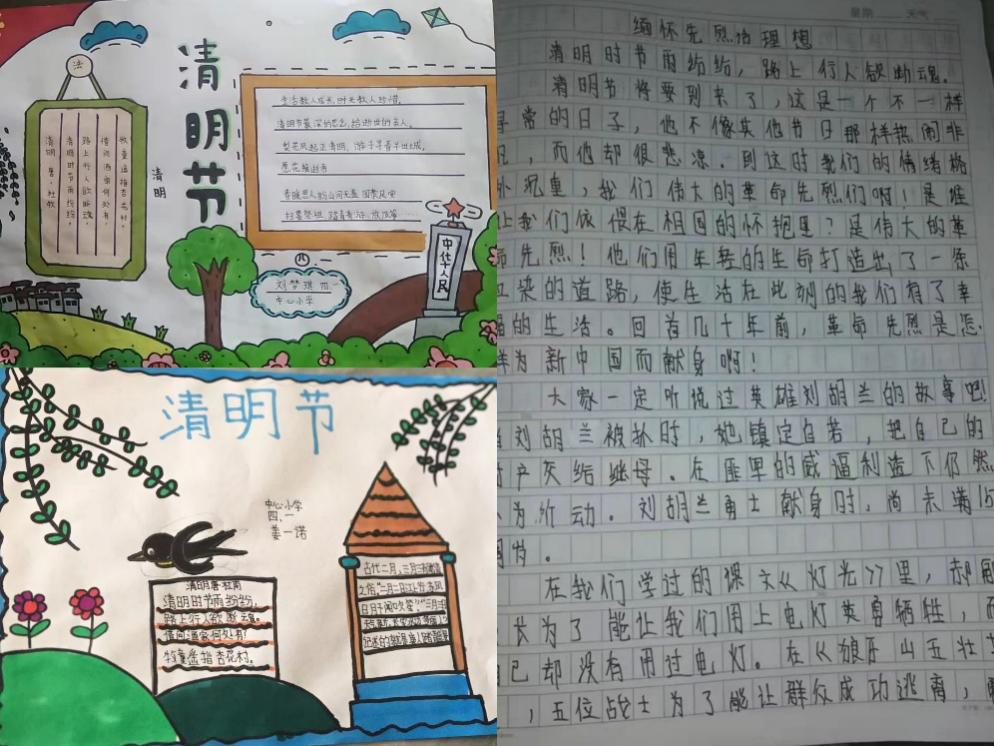 清明节
法
牧童遥指杏花村。
借问酒家何处有
路上行人欲断魂
清明时节雨纷纷
清明 唐·杜牧
清明
清明节最深的思念,给逝世的亲人。
中华人民
四
刘梦琪 四一
中心小学
清明节
中心小学
四、一
姜一诺
清明唐·杜甫
清明时节雨纷纷,
路上行人欲断魂。
借问酒家何处有?
牧童遥指杏花村。
古代二月、三月
缅怀先烈治理想
清明时节雨纷纷,路上行人欲断魂。
清明节将要到来了,这是一个不一样
寻常的日子,他不像其他节日那样热闹非
凡,而他却很悲凉。到这时我们的情绪格
外沉重,我们伟大的革命先烈们啊!是谁
让我们依偎在祖国的怀抱里?是伟大的革
命先烈!他们用年轻的生命打造出了一条
红染的道路,使生活在此刻的我们有了幸
福的生活。回首几十年前,革命先烈是怎
样为新中国而献身啊!
大家一定听说过英雄刘胡兰的故事吧!
当刘胡兰被抓时,她镇定自若,把自己的
财产灰给继母。在匪军的威逼利造下仍然
不为所动。刘胡兰勇士献身时,尚未满15
周岁。
在我们学过的课文《灯光》里,郝副
长为了能让我们用上电灯英勇牺牲,而
己却没有用过电灯。在《狼牙山五壮士
,五位战士为了能让群众成功逃离,